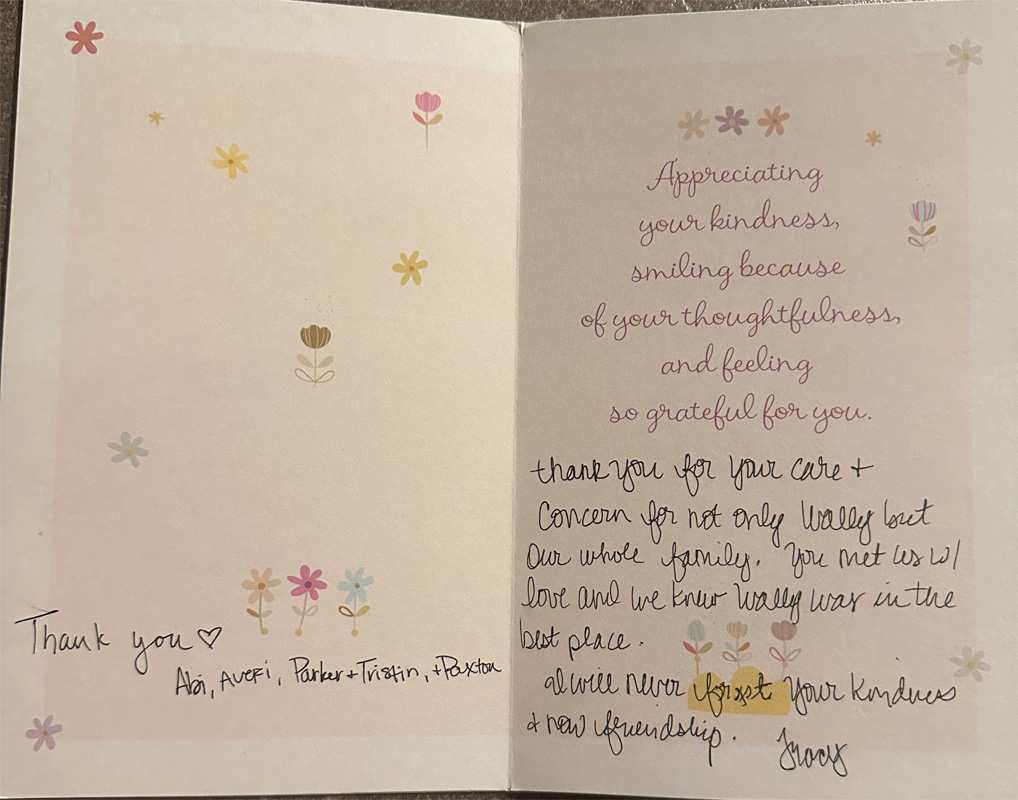 Thank you ♡
Abi, Averi, Parker + Tristin, + Paxton
Appreciating
your kindness,
smiling because
of your thoughtfulness,
and feeling
so grateful for you.
thank you for your care +
Concern for not only Wally but
our whole family. You met us w/
love and we knew Wally was in the
best place.
I will never forget your kindness
+ new friendship.
Tracy